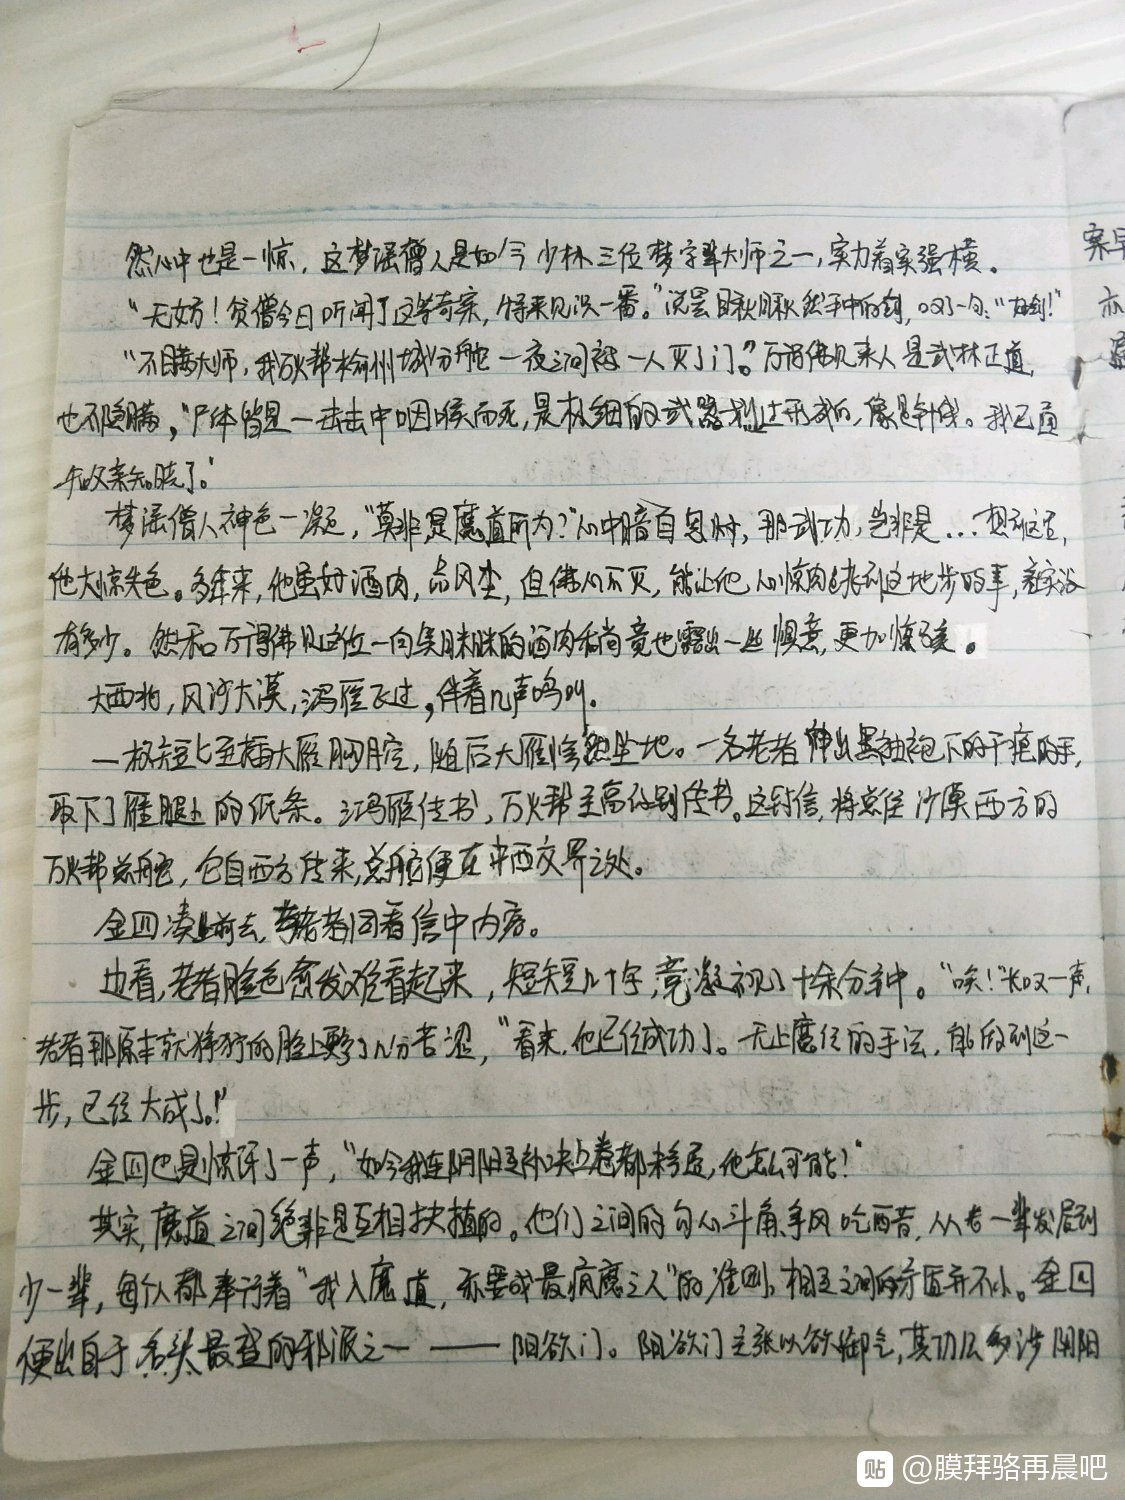 然心中也是一惊，这梦谣僧人是如今少林三位梦字辈大师之一，实力着实强横。
“无妨！贫僧今日听闻了这等奇案，特来见识一番。”说罢
“不瞒大师，我万火帮木俞州城分舵一夜之间被一人灭了门。”万得佛见来人是武林正道，
也不隐瞒，“尸体皆是一击击中咽喉而死，是极细的武器划过形成的，像是针线。我已
晓了。”
梦谣僧人神色一凝，“莫非是魔道所为？”心中暗自思忖，那武功，岂非是...想到这里，
他大惊失色。多年来，他虽好酒肉，占风尘，但佛心不灭，能让他心惊肉跳到这地步的事，着实没
有多少。然和万得佛见这位一向笑眯眯的酒肉和尚竟也露出一丝惧意，更加惊疑。
大西北，风沙大漠，鸿雁飞过，伴着几声鸣叫。
一枚短匕至插大雁胸腔，随后大雁坠地。一名老者伸出黑袖袍下的干疤的手，
取下了雁腿上的纸条。鸿雁传书，万火帮至高级别传书。这封信，将点往沙漠西方的
万火帮总舵，它自西方传来，总舵便在中西交界之处。
金四凑上前去，与老者同看信中内容。
边看，老者脸色愈发难看起来，短短几十字，竟凝视了十余分钟。“唉！”长叹一声，
老者那原本就狰狞的脸上更多了几分苦涩，“看来，他已经成功了。无上魔经的手法，能做到这一
步，已经大成了。”
金四也是惊呀了一声，“如今我连阴阳互补决上卷都未参透，他怎么可能！”
其实，魔道之间绝非是互相扶植的。他们之间的勾心斗角争风吃西昔，从老一辈发展到
少一辈，每个人都奉行着“我入魔道，亦要成最疯魔之人”的准则，相互之间的矛盾并不小。金四
便出自于名头最盛的邪派之一——阴欲门。阴欲门主张以欲御气，其功法多涉阴阳
案早
亦
贴 @膜拜骆再晨吧